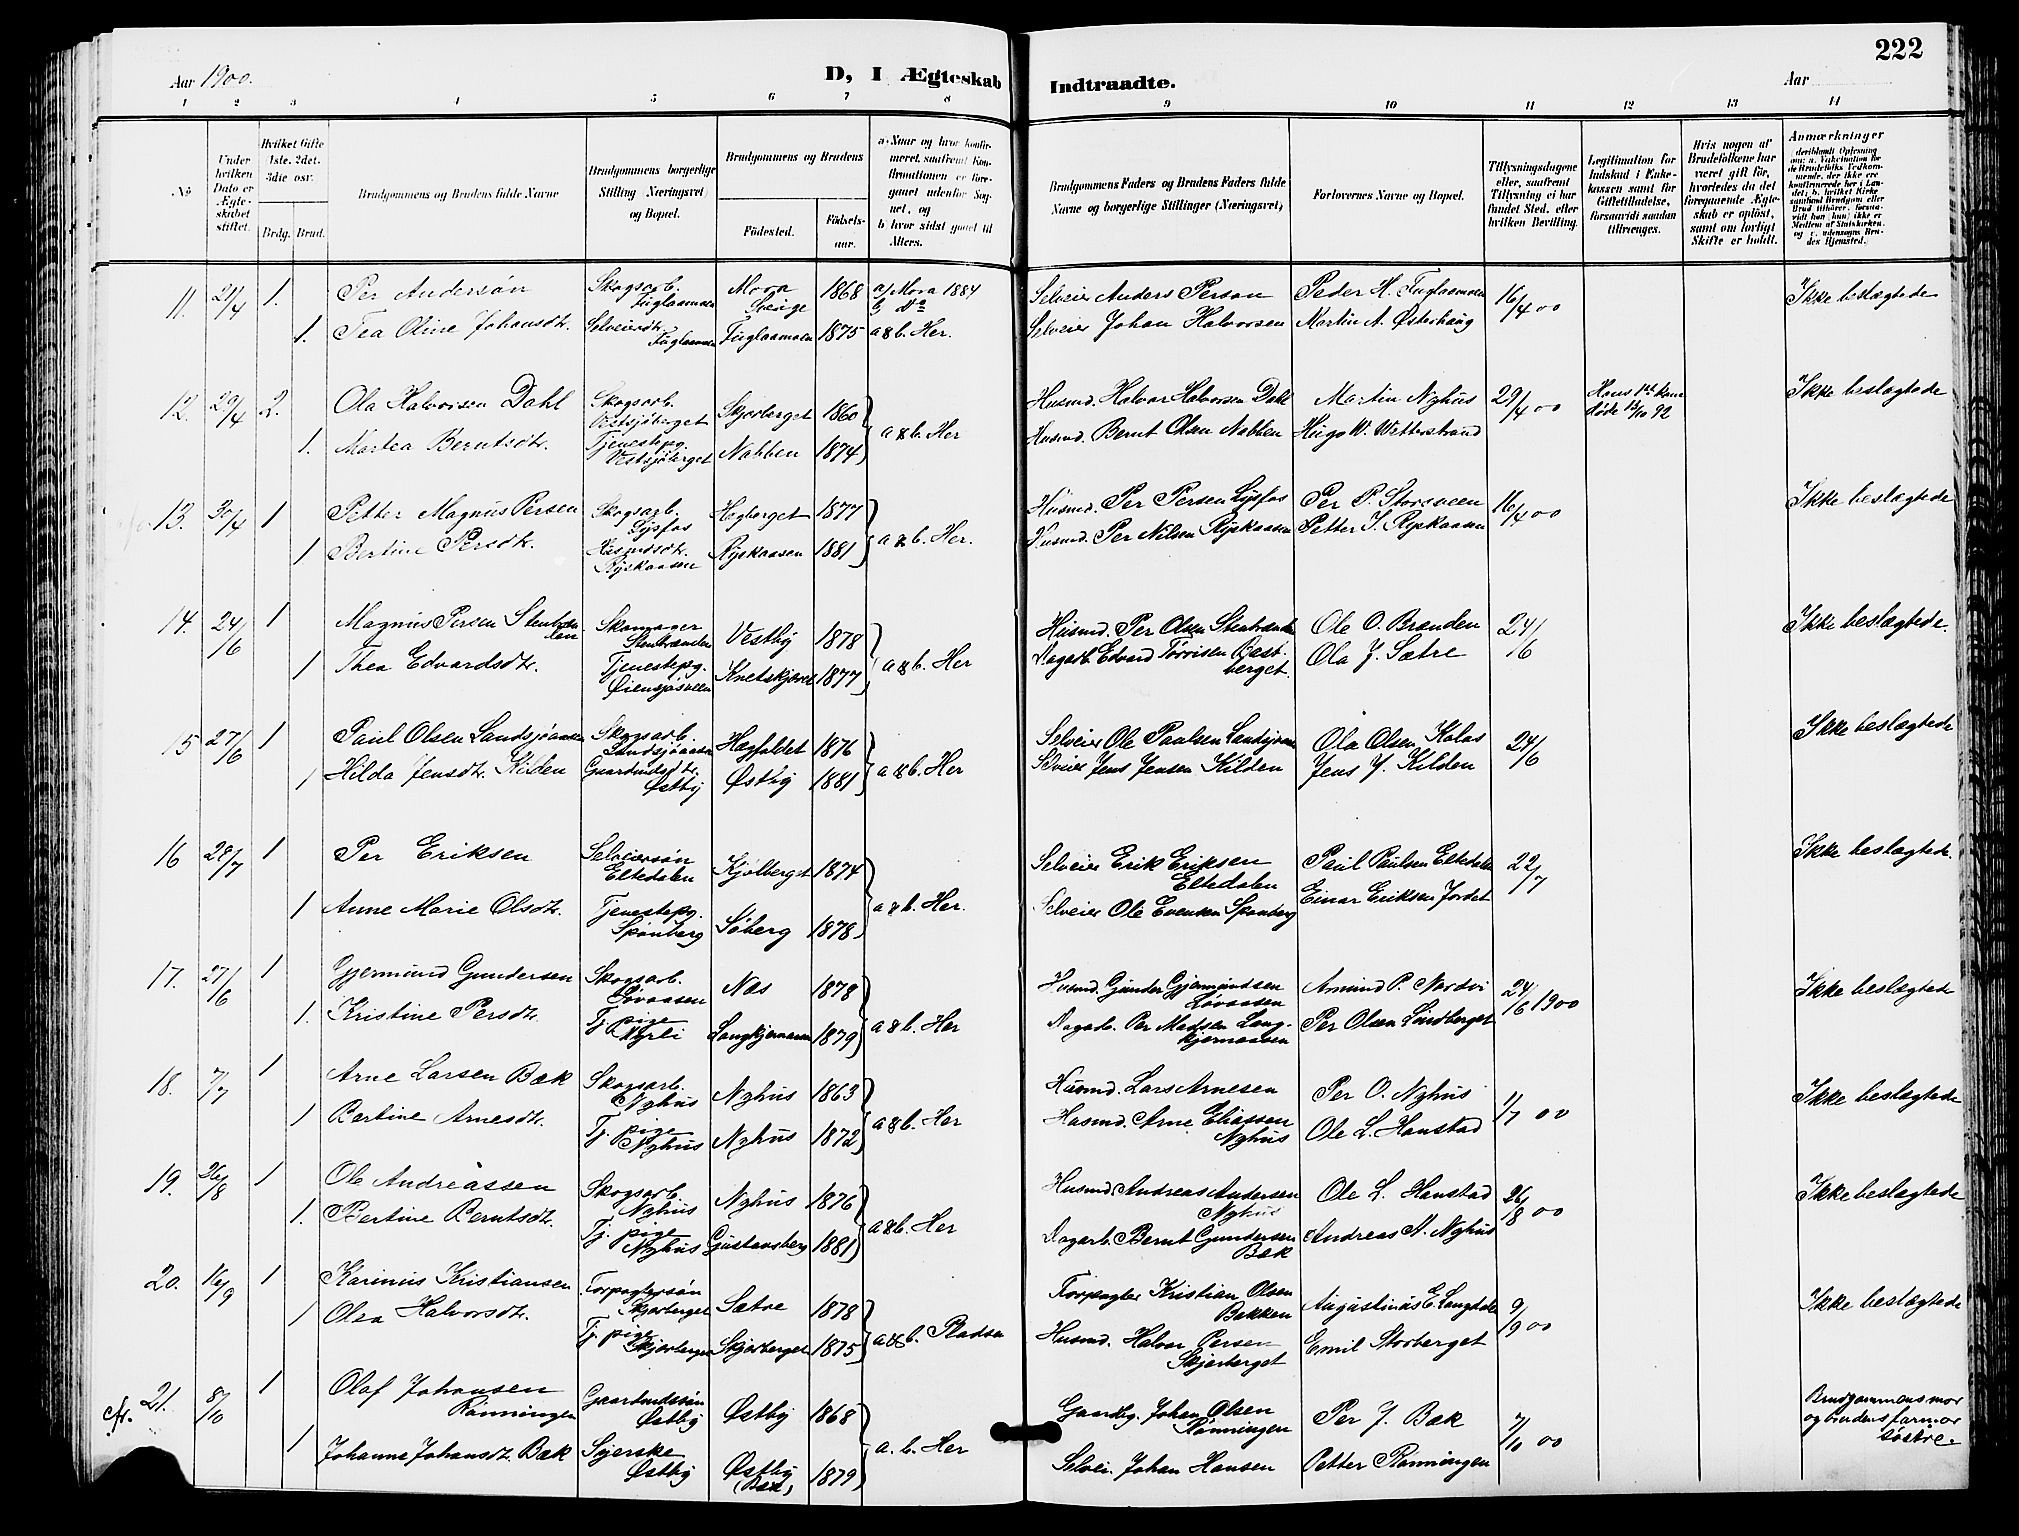 222
Aar 1900.
D, I Ægteskab
Indtraadte.
Aar
1 2 3 4 5 6 7 8 9 10 11 12 13 14
No
Under hvilken Dato er Ægteskabet stiftet.
Hvilket Gifte 1ste. 2det. 3die osv.
Brdg. Brud.
Brudgommens og Brudens fulde Navne
Brudgommens borgerlige Stilling (Næringsvei) og Bopæl.
Brudgommens og Brudens
Födested.
Födselsaar.
a, Naar og hvor konfirmeret, saafremt Konfirmationen er foregaaet udenfor Sognet, og b hvor sidst gaaet til Alters.
Brudgommens Faders og Brudens Faders fulde Navne og borgerlige Stillinger (Næringsvei)
Forlovernes Navne og Bopæl.
Tillysningsdagene eller, saafremt Tillysning ei har fundet Sted, efter hvilken Bevilling.
Legitimation for Indskud i Enkekassen samt for Giftetilladelse, forsaavidt saadan tiltrænges.
Hvis nogen af Brudefolkene har været gift för, hvorledes da det foregaaende Ægteskab er oplöst, samt om lovligt Skifte er holdt.
Anmærkninger
11. 21/4 1. Per Andersön Skogsarb. Fuglaamoen Mora Sverige 1868 a, Mora 1884 b, Do Selveier Anders Person Peder H. Fuglaamoen 16/4 00 Ikke beslægtede
1. Tea Oline Johansdtr. Selveierdtr. Fuglaamoen Fuglaamoen 1875 a & b. Her. Selveier Johan Halvorsen Martin A. Østerhaug
12. 29/4 2. Ola Halvorsen Dahl Skogsarb. Vestsjöberget Skjærberget 1860 a & b. Her Husmd. Halvor Halvorsen Dahl Martin Nyhus 29/4 00 Hans 1ste kone döde 13/10 92 Ikke beslægtede
1. Martea Berntsdtr. Tjenestepg. Vestsjöberget Nabben 1874 Husmd. Bernt Olsen Nabben Hugo W. Wetterstrand
13. 30/4 1 Petter Magnus Persen Skogsarb. Lysfos Hegberget 1877 a & b. Her. Husmd. Per Persen Lysfos Per P. Storsveen 16/4 00 Ikke beslægtede
1 Bertine Persdtr. Husmdsdtr. Ryskaasen Ryskaasen 1881 Husmd. Per Nilsen Ryskaasen Petter J. Ryskaasen
14. 24/6 1 Magnus Persen Skomager Stenbranden Vestby 1878 a & b. Her Husmd. Per Olsen Ole O. Brænden 24/6 Ikke beslægtede.
1 Thea Edvardsdtr. Tjenestepg. Öiensjösveen 1877 Dagarb. Edvard Ola J. Sætre
15 27/6 1 Paul Olsen Landsjöaasen Skogsarb. Landsjöaasen Hægfaldet 1876 a & b. Her Selveier Ole Paulsen Landsjöaasen Ola Olsen Kolos 24/6 Ikke beslægtede
1 Hilda Jensdtr. Kilden Gaardmdsdtr. Østby Østby 1881 Selveier Jens Jensen Kilden Jens J. Kilden
16 28/7 1 Per Eriksen Selveiersön Eltedalen Kjölberget 1874 a & b. Her. Selveier Erik Eriksen Eltedalen Paul Paulsen Eltedalen 22/7 Ikke beslægtede.
1 Anne Marie Olsdtr. Tjenestepg. Spönberg Söberg 1878 Selveier Ole Evensen Spönberg Einar Eriksen Jordet
17. 27/6 1 Gjermund Gundersen Skogsarb. Lövaasen Næs 1878 a & b. Her Husmd. Gunder Gjermundsen Lövaasen Amund P. Nordvi 24/6 1900 Ikke beslægtede
1. Kristine Persdtr. Tj. pige Nyrli Langkjernaasen 1879 Dagarb. Per Madsen Langkjernaasen Per Olsen Lindberget
18. 7/7 1 Arne Larsen Bæk Skogsarb. Nyhus Nyhus 1863 a & b. Her Husmd. Lars Arnesen Per O. Nyhus 1/7 00 Ikke beslægtede
1 Bertine Arnesdtr. Tj. pige Nyhus Nyhus 1872 Husmd. Arne Eliassen Nyhus Ole L. Hanstad
19. 26/8 1 Ole Andreassen Skogsarb. Nyhus Nyhus 1876 a & b. Her Husmd. Andreas Andersen Nyhus Ole L. Hanstad 26/8 00 Ikke beslægtede
1. Bertine Berntsdtr. Tj. pige Nyhus Gustavsberg 1881 Dagarb. Bernt Gundersen Bæk Andreas A. Nyhus
20. 16/9 1 Karinus Kristiansen Forpagtersön Skjærberget Sætre 1878 a & b. Pladsen Forpagter Kristian Olsen Bakken Augustinus E. 9/9 00 Ikke beslægtede
1 Olea Halvorsdtr. Tj. pige Skjærberget Skjærberget 1875 Husmd. Halvor Persen Skjærberget Emil Storberget
21. 8/10 1 Olaf Johansen Rönningen Gaardmdssön Østby Østby 1868 a. b. Her Gaardbg. Johan Olsen Rönningen Per J. Bæk 7/10 00 Brudgommens mor og brudens farmor söstre.
1 Johanne Johansdtr. Bæk Syerske Østby Østby (Bæk) 1879 Selvei. Johan Hansen Petter Rönningen